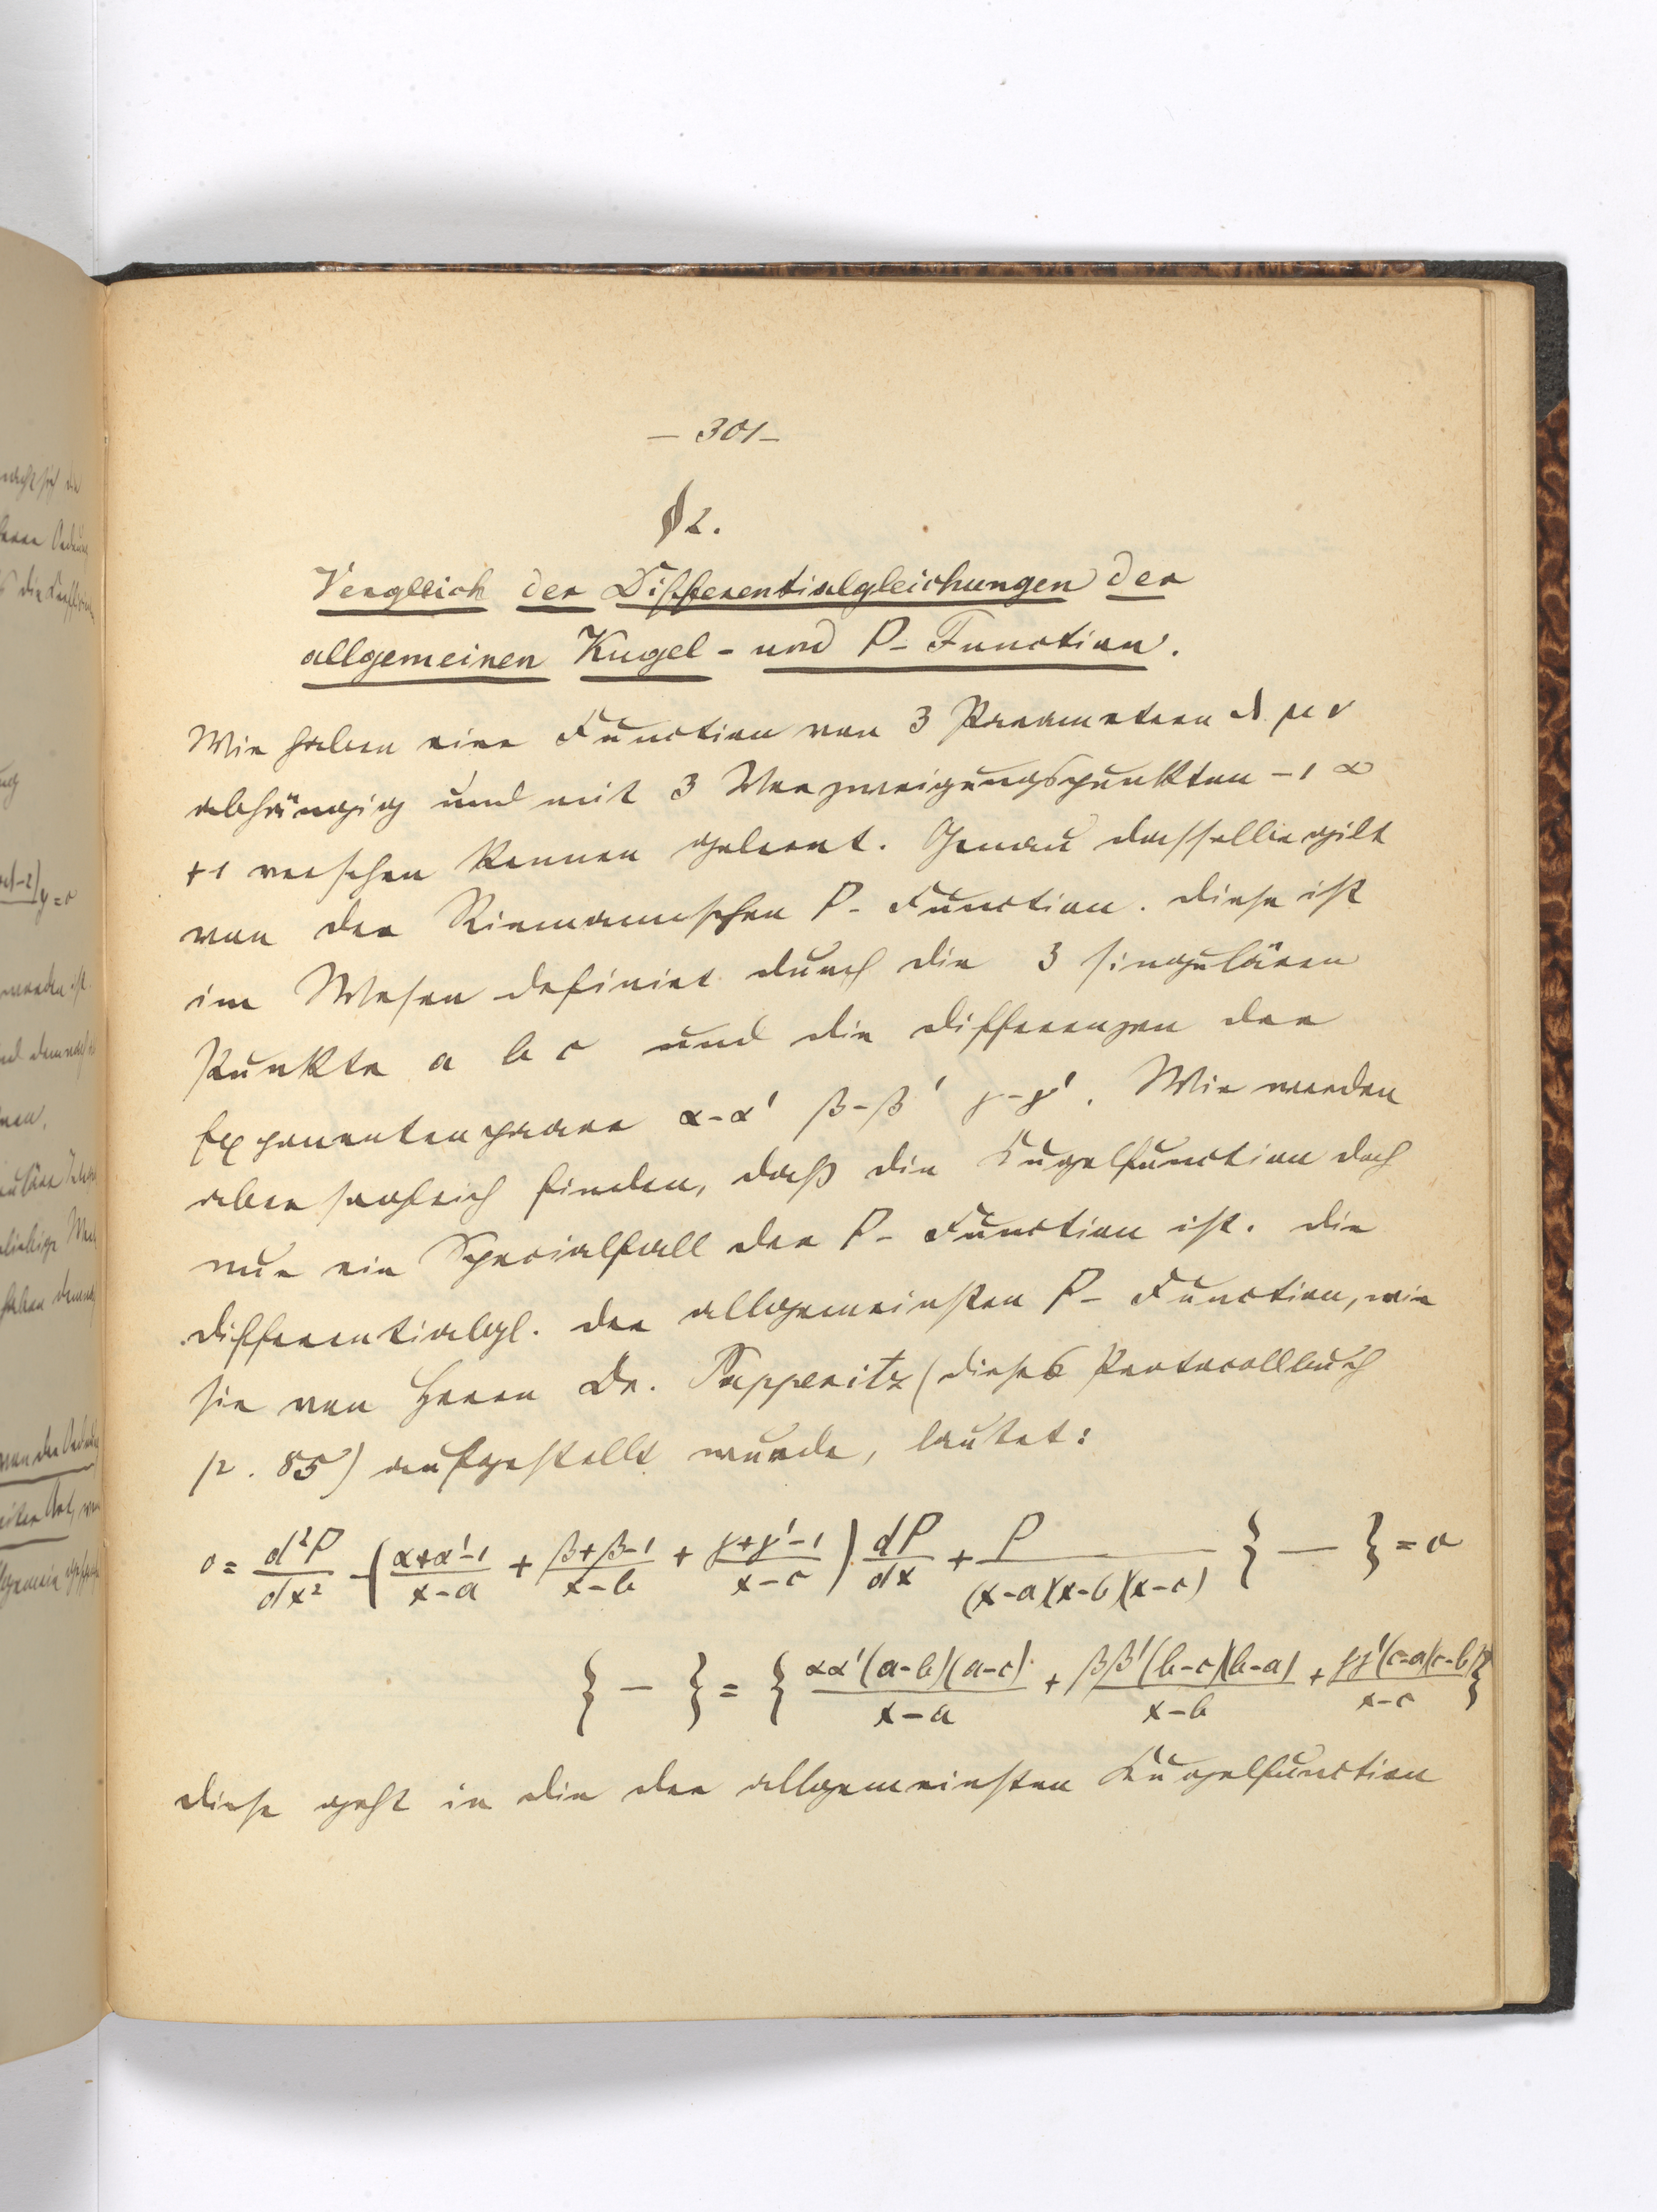 — 301 —
§ 2.
Vergleich der Differentialgleichungen der
allgemeinen Kugel- und P- Function.
Wir haben eine Function von 3 Parametern λ μ ν
abhängig und mit 3 Verzweigungspunkten -1 ∞
+1 versehen kennen gelernt. Genau dasselbe gilt
von der Riemannschen P- Function. Diese ist
im Wesen definirt durch die 3 singulären
Punkte a b c und die Differenzen der
Exponentenpaare α-α' β-β' γ-γ'. Wir werden
aber sogleich finden, daß die Kugelfunction doch
nur ein Specialfall der P- Function ist. Die
Differentialgl. der allgemeinsten P- Function, wie
sie von Herrn Dr. Papperitz (dieses Protocollbuch
p. 85) aufgestellt wurde, lautet:
0 = d²P/dx² - (α+α'-1/x-a + β+β-1/x-b + γ+γ'-1/x-c) dP/dx + P/(x-a)(x-b)(x-c) { — } = 0
{ — } = { αα'(a-b)(a-c)/x-a + ββ'(b-c)(b-a)/x-b + γγ'(c-a)(c-b)/x-c }
Diese geht in die der allgemeinsten Kugelfunction